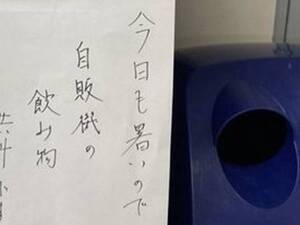 今日も暑いので
自販機の
飲み物